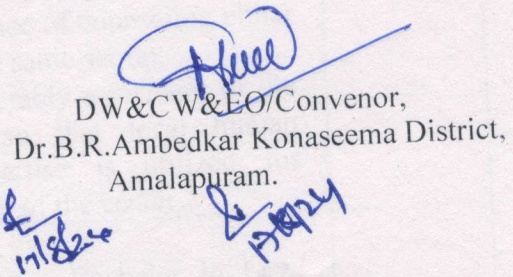 DW&CW&EO/Convenor,
Dr.B.R.Ambedkar Konaseema District,
Amalapuram.
17/8/24 17/8/24